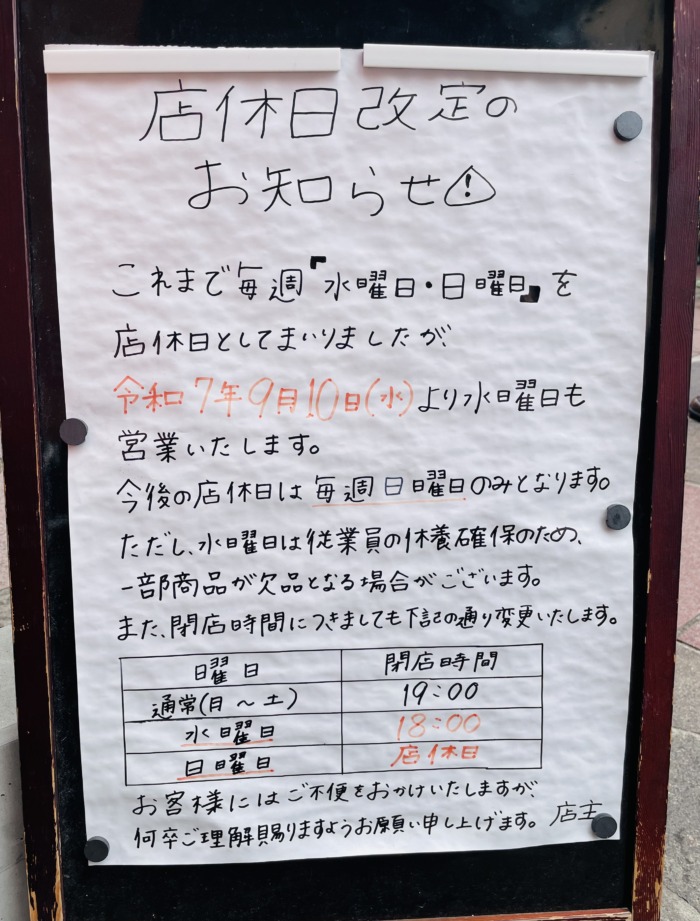 店休日改定の
お知らせ!
これまで毎週『水曜日・日曜日』を
店休日としてまいりましたが
令和7年9月10日(水)より水曜日も
営業いたします。
今後の店休日は毎週日曜日のみとなります。
ただし、水曜日は従業員の休養確保のため、
一部商品が欠品となる場合がございます。
また、閉店時間につきましても下記の通り変更いたします。
曜日 閉店時間
通常(月〜土) 19:00
水曜日 18:00
日曜日 店休日
お客様にはご不便をおかけいたしますが、
何卒ご理解賜りますようお願い申し上げます。 店主